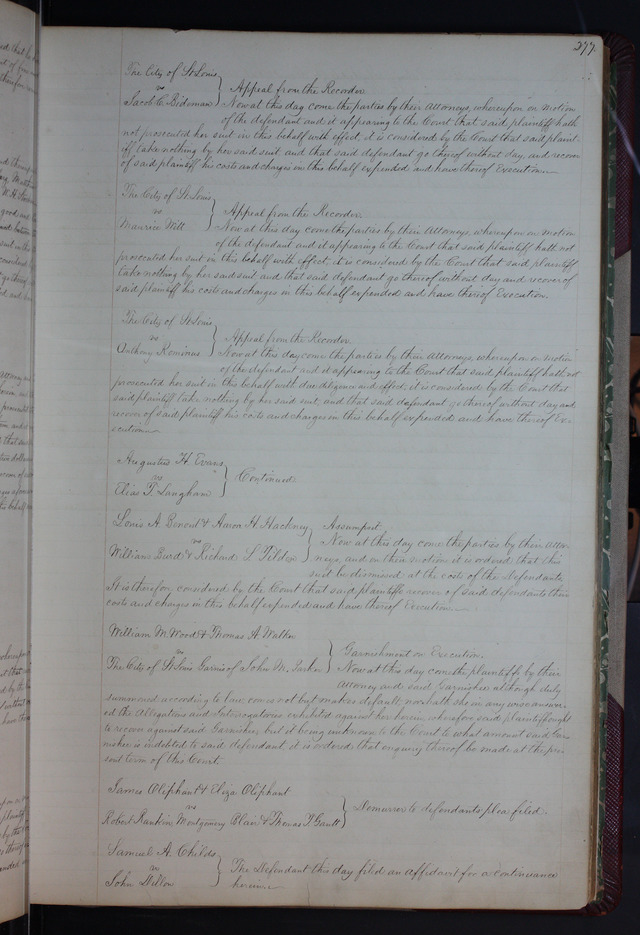 377.
The City of St Louis
vs
Jacob C. Bideman
Appeal from the Recorder
Now at this day come the parties by their Attorneys, whereupon on Motion
of the defendant and it appearing to the Court that said plaintiff hath
not prosecuted her suit in this behalf with effect, it is considered by the Court that said plaint-
iff take nothing by her said suit, and that said defendant go thereof without day, and recover
of said plaintiff his costs and charges in this behalf expended and have thereof Execution.
The City of St Louis
vs
Maurice Witt
Appeal from the Recorder
Now at this day come the parties by their Attorneys, whereupon on motion
of the defendant and it appearing to the Court that said plaintiff hath not
prosecuted her suit in this behalf with effect it is considered by the Court that said plaintiff
take nothing by her said suit and that said defendant go thereof without day and recover of
said plaintiff his costs and charges in this behalf expended and have thereof Execution.
The City of St Louis
vs
Anthony Romirius
Appeal from the Recorder
Now at this day come the parties by their Attorneys, whereupon on motion
of the defendant and it appearing to the Court that said plaintiff hath not
prosecuted her suit in this behalf with due diligence and effect, it is considered by the Court that
said plaintiff take nothing by her said suit, and that said defendant go thereof without day and
recover of said plaintiff his costs and charges in this behalf expended and have thereof Ex-
ecution
Augustus H. Evans
vs
Elias T. Langham
Continued
Louis A. Benoist & Aaron H. Hackney
vs
William Burd & Richard S. Tilden
Assumpsit
Now at this day come the parties by their Attor-
neys, and on their motion it is ordered that this
suit be dismissed at the cost of the Defendants,
It is therefore considered by the Court that said plaintiffs recover of said defendants their
costs and charges in this behalf expended and have thereof Execution.
William M. Wood & Thomas A. Walton
vs
The City of St Louis Garnis of John M. Parker
Garnishment on Execution.
Now at this day come the plaintiffs by their
Attorney and said Garnishee although duly
summoned according to law, comes not but makes default, nor hath she in any wise answer-
ed the Allegations and Interrogatories exhibited against her herein, wherefore said plaintiffs ought
to recover against said Garnishee, but it being unknown to the Court to what amount said Gar-
nishee is indebted to said defendant, it is ordered, that enquiry thereof be made at the pre-
sent term of this Court.
James Oliphant & Eliza Oliphant
vs
Robert Rankin, Montgomery Blair & Thomas T. Gantt
Demurrer to defendants pleas filed.
Samuel A. Childs
vs
John Dillon
The Defendant this day filed an Affidavit for a continuance
herein